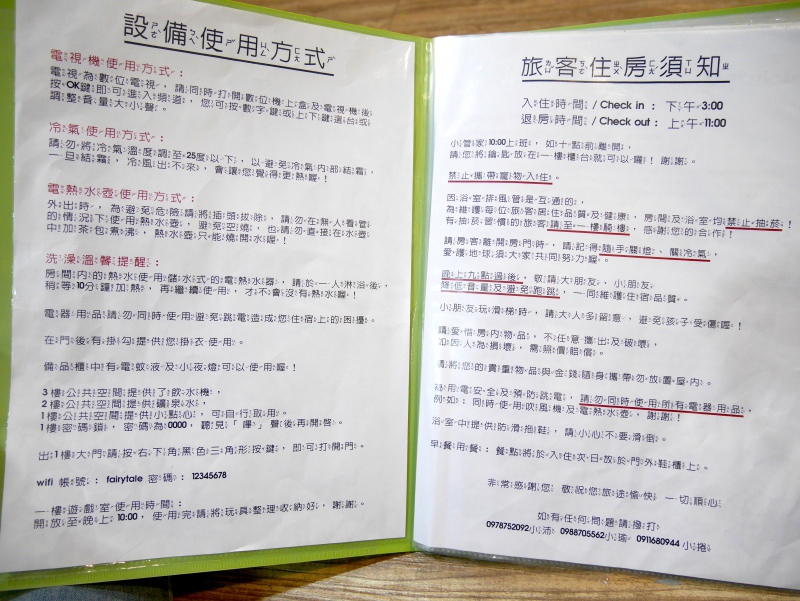 設備使用方式
電視機使用方式：
電視為數位電視，請同時打開數位機上盒及電視機後
按OK鍵即可進入頻道，您可按數字鍵或上下鍵選台或
調整音量大小聲。
冷氣使用方式：
請勿將冷氣溫度調至25度以下，以避免冷氣內部結霜，
一旦結霜，冷風出不來，會讓您覺得更熱喔！
電熱水壺使用方式：
外出時，為避免危險請將插頭拔除，請勿在無人看管
的情況下使用熱水壺，避免空燒，也請勿直接在水壺
中加茶包煮沸，熱水壺只能燒開水喔！
洗澡溫馨提醒：
房間內的熱水使用儲水式的電熱水器，請於一人淋浴後，
稍等10分鐘加熱，再繼續使用，才不會沒有熱水器！
電器用品請勿同時使用避免跳電造成您住宿上的困擾。
在門後有掛勾提供您掛衣使用。
備品櫃中有電蚊液及小夜燈可以使用喔！
3樓公共空間提供了飲水機，
2樓公共空間提供礦泉水，
1樓公共空間提供小點心，可自行取用。
1樓密碼鎖，密碼為0000，聽見「嗶」聲後再開啓。
出1樓大門請按右下角黑色三角形按鍵，即可打開門。
wifi 帳號：fairytale 密碼：12345678
一樓遊戲室使用時間：
開放至晚上10:00，使用完請將玩具整理收納好，謝謝。
旅客住房須知
入住時間 / Check in：下午3:00
退房時間 / Check out：上午11:00
小管家10:00上班，如十點前離開，
請您將鑰匙放在一樓櫃台就可以囉！謝謝。
禁止攜帶寵物入住。
因浴室排風管是互通的，
為維護每位旅客居住品質及健康，房間及浴室均禁止抽菸！
有抽菸習慣的旅客請至一樓騎樓，感謝您的合作！
請房客離開房門時，請記得隨手關燈、關冷氣，
愛護地球須大家共同努力喔。
晚上九點過後，敬請大朋友，小朋友，
降低音量及避免跑跳，一同維護住宿品質。
小朋友玩滑梯時，請大人多留意，避免孩子受傷喔！
請愛惜房內物品，不任意攜出及破壞，
如因人為損壞，需照價賠償。
請將您的貴重物品與金錢隨身攜帶勿放置屋內。
為用電安全及預防跳電，請勿同時使用所有電器用品，
例如：同時使用吹風機及電熱水壺，謝謝！
浴室中提供防滑拖鞋，請小心不要滑倒。
早餐用餐：餐點將於入住次日放於門外鞋櫃上。
非常感謝您 敬祝您旅途愉快 一切順心
如有任何問題請撥打
0978752092小沛 0988705562小瑜 0911680944 小捲